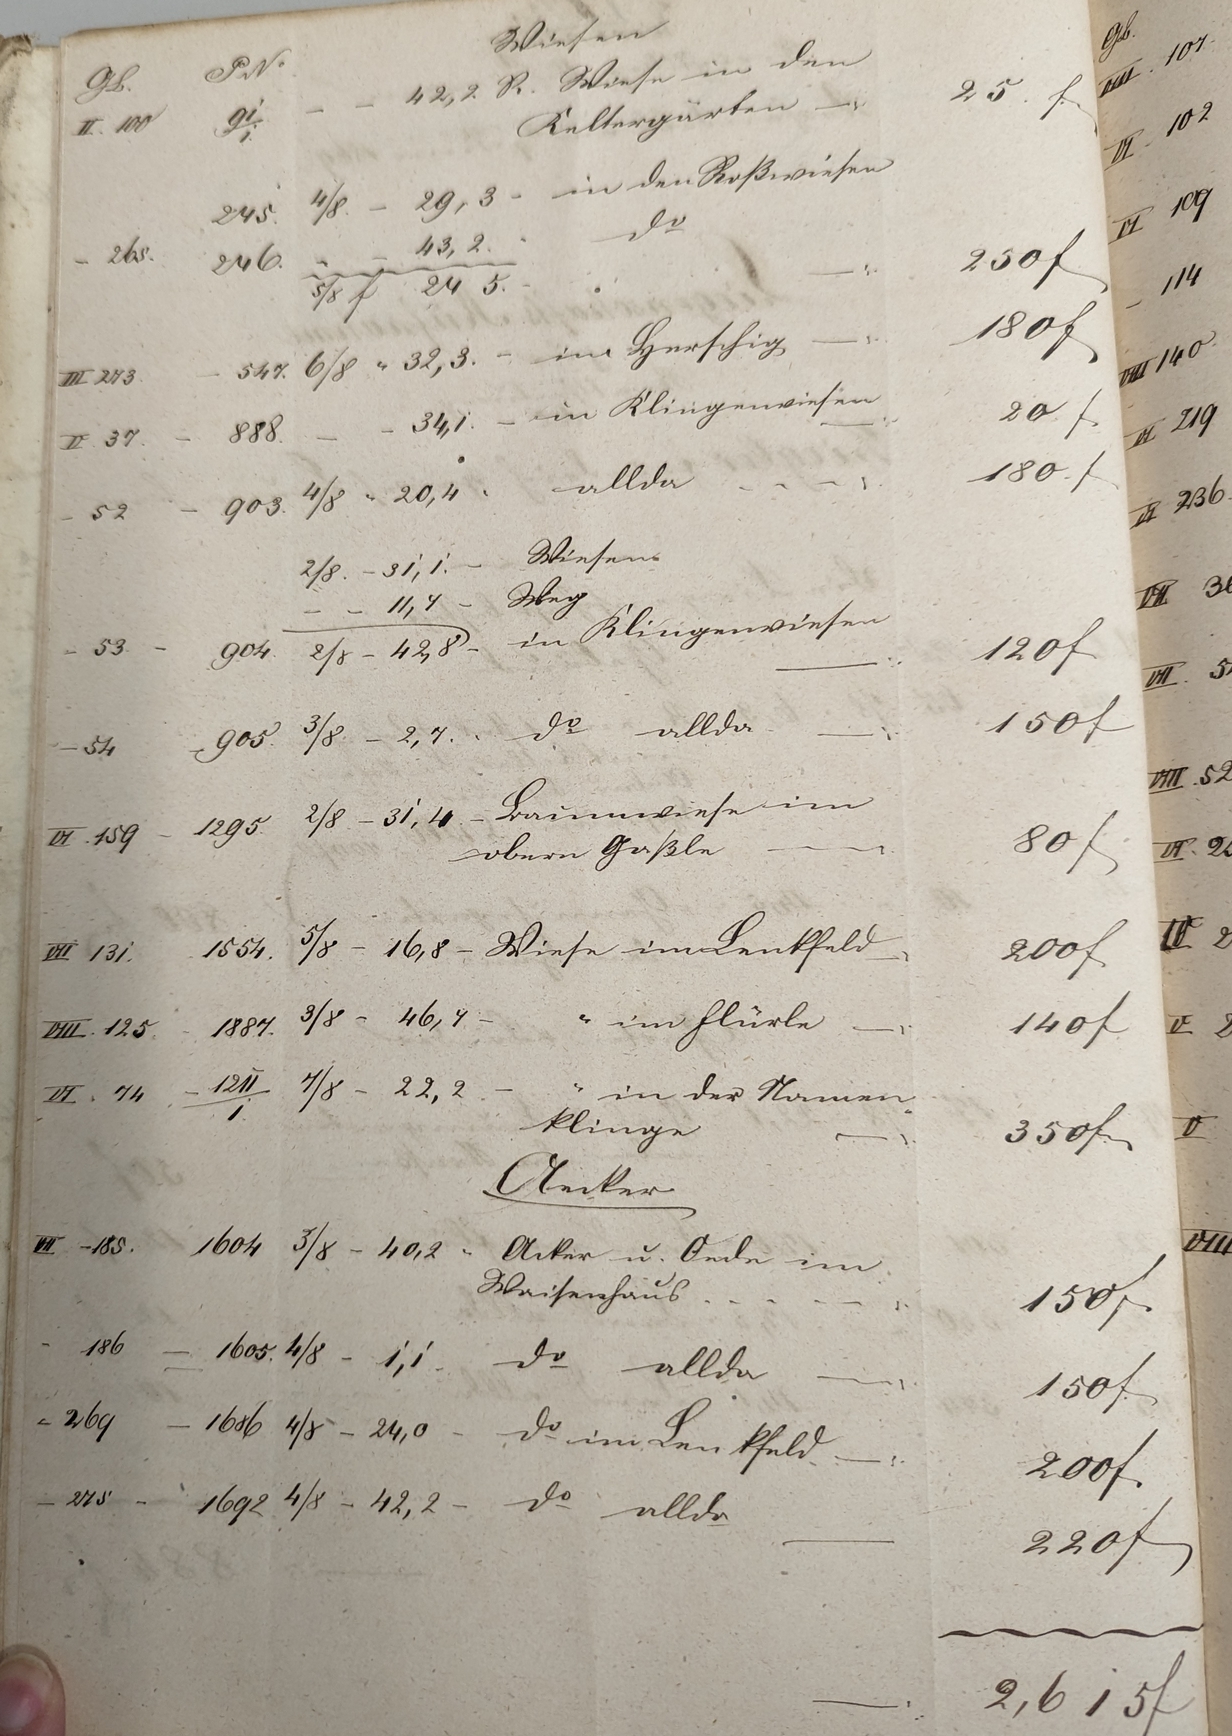 Wiesen
Gb. P.No.
II. 100 91/1. - - 42,2. R. Wiese in den
Keltergärten - 25. f.
245. 4/8. - 29,3 - in den Roßwiesen
- 265. 246. - - 43,2. do
5/8 f 24 5. - 250 f
III 273. - 547. 6/8 " 32,3. - im Herrschig - 180 f
V 37. - 888. - - 34,1. - in Klingenwiesen 20 f
- 52 - 903. 4/8 " 20,4 " allda 180. f
2/8. - 31,1. - Wiesen
- - 11,7 - Weg
- 53 - 904. 2/8 - 42,8 - in Klingenwiesen 120 f
- 54 - 905. 3/8 - 2,7. " do allda 150 f
VI. 159 - 1295. 2/8 - 31,4 - Baumwiese im
obern Gaßle 80 f
VII 131. 1554. 5/8 - 16,8 - Wiese im Lenkfeld 200 f
VIII. 125. - 1887. 3/8 - 46,7 - " im Flürle - 140 f
VI. 74 - 1211/1. 7/8 - 22,2 - " in der Namen-
klinge 350 f
Aecker
VII - 185. 1604 3/8 - 40,2 " Acker u. Oede im
Waisenhaus 150 f
- 186 - 1605. 4/8 - 1,1 - do allda - 150 f
- 269 - 1686 4/8 - 24,0 - do im Lenkfeld - 200 f
- 275 - 1692 4/8 - 42,2 - do allda 220 f
2,615 f
Gb.
VIII. 107
VI 102
VI 109
- 114
VIII 140
VI 219
VI 236
VII
VII.
VIII. 52
VI.
V
V
VIII